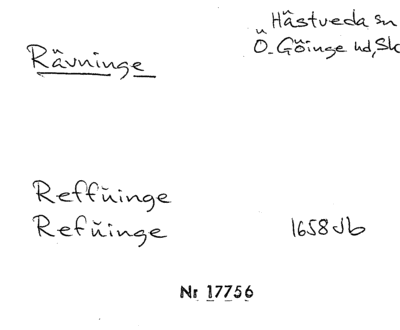 Hästveda sn
Rävninge
Ö. Göinge hd, Sk
Reffŭinge
Refŭinge 1658 Jb
Nr 17756